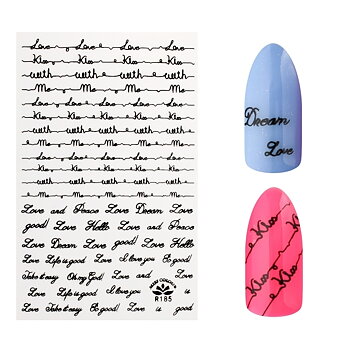 Love Love Love Love
Kiss Kiss Kiss Kiss
with with with with
Me Me Me Me
Love Love Love Love
Kiss Kiss Kiss Kiss
with with with with
Me Me Me Me
Love Love Love Love
Kiss Kiss Kiss Kiss
with with with with
Me Me Me Me
Love and Peace Love Dream Love
good! Love Hello Love and Peace
Love Dream Love good! Love Hello
Love Life is good Love I love you is
Take it easy Oh my God! Love and Love
Love Life is good I love you Love
Take it easy Love good! R185 Love
Dream
Love
Kiss
Kiss
Kiss
Kiss